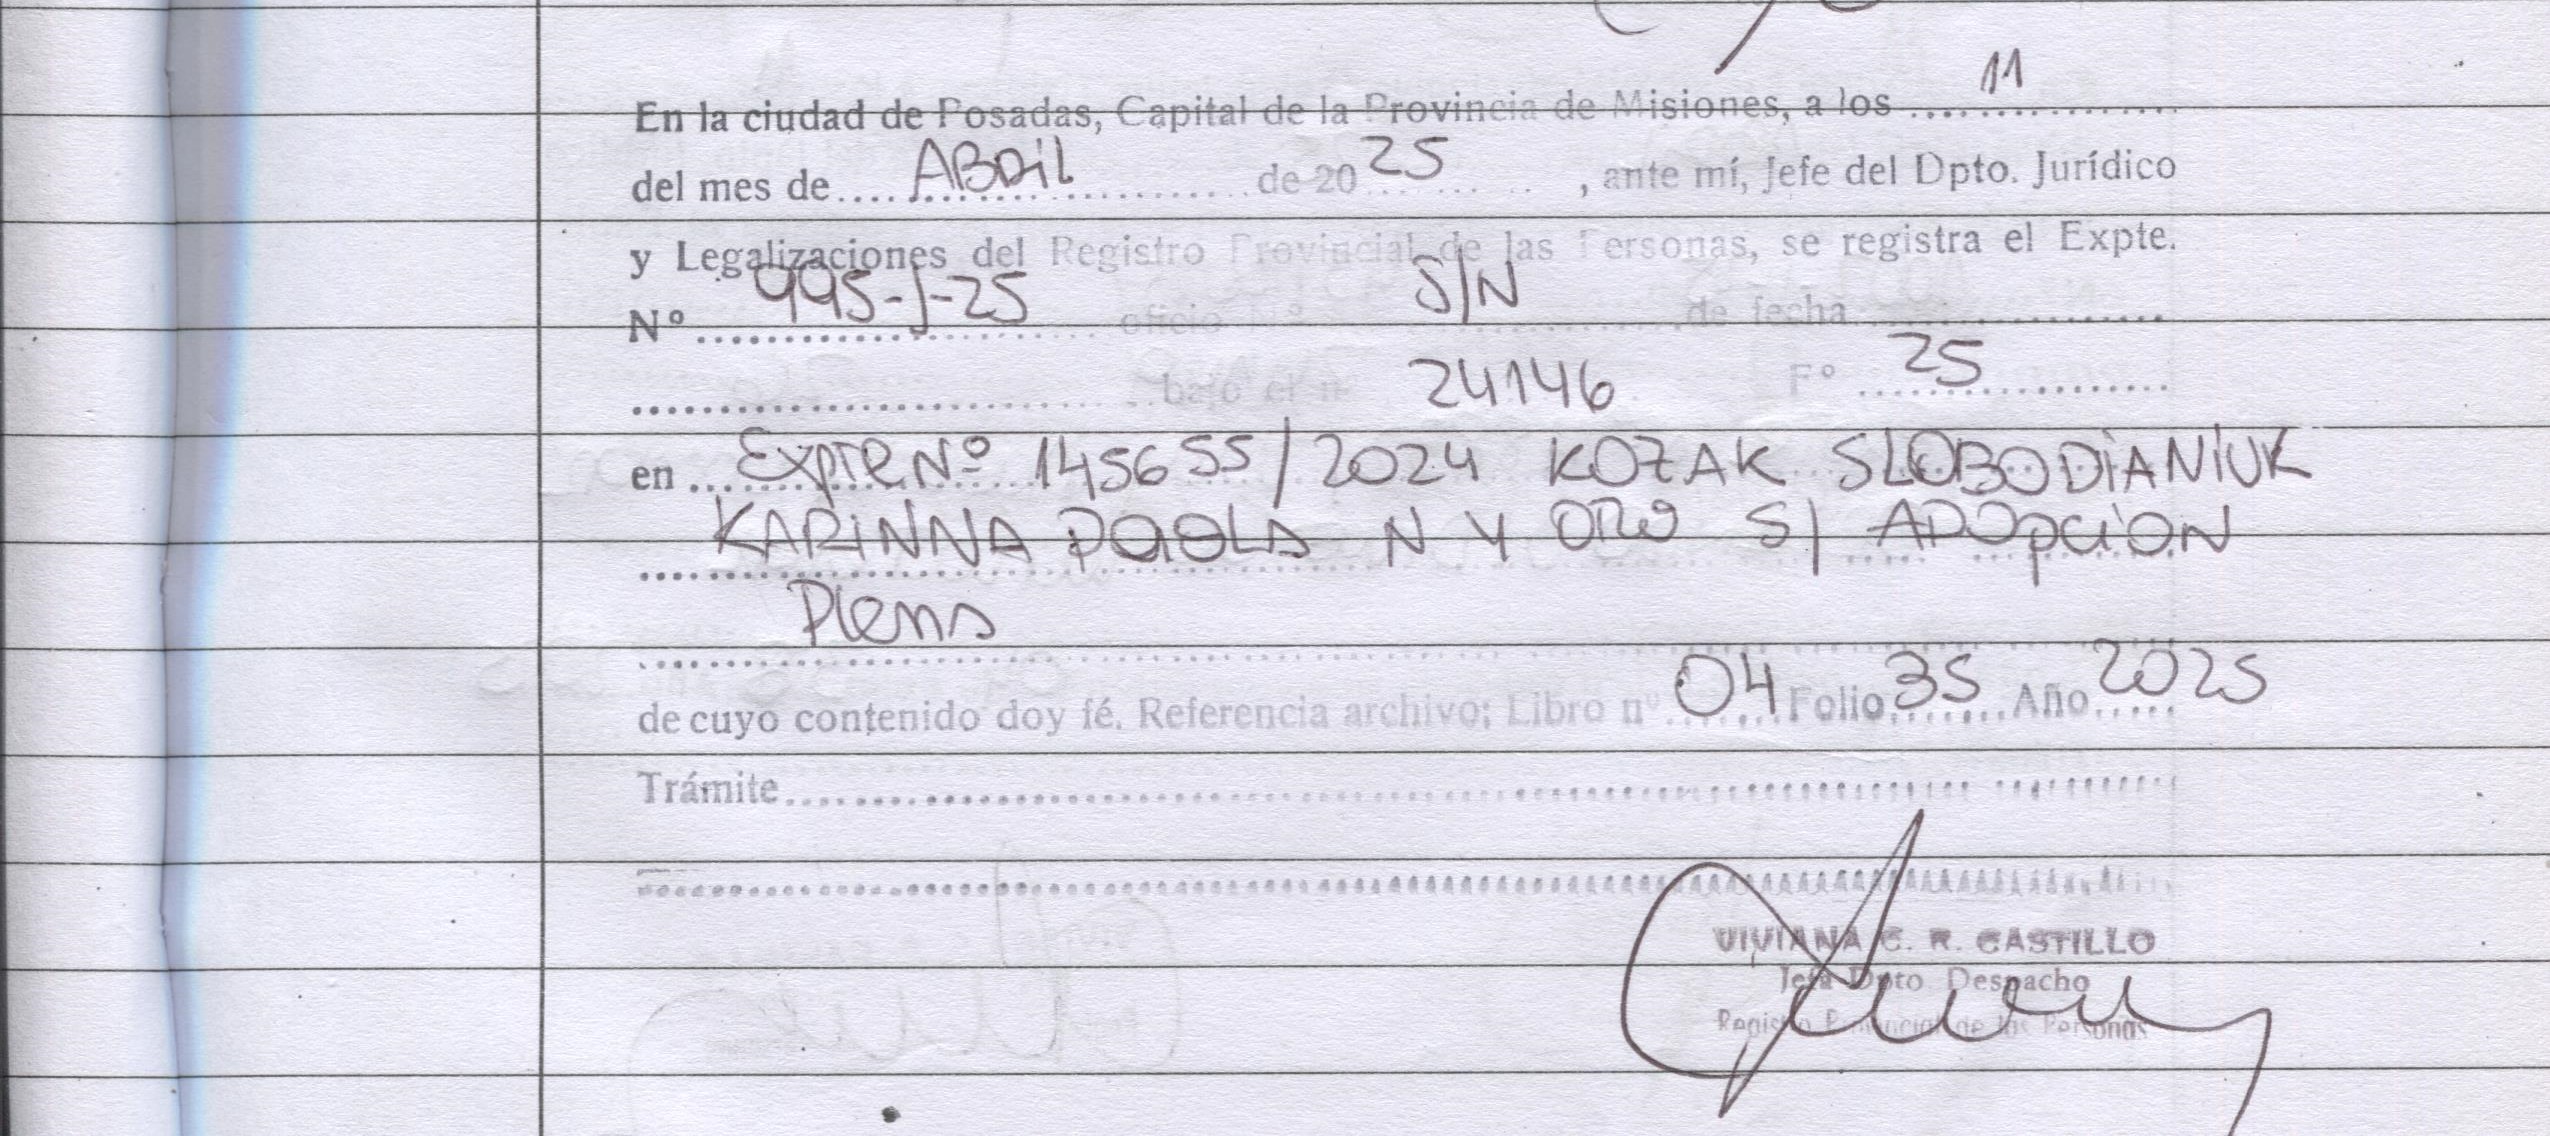 En la ciudad de Posadas, Capital de la Provincia de Misiones, a los 11
del mes de ABRIL de 2025, ante mí, Jefe del Dpto. Jurídico
y Legalizaciones del Registro Provincial de las Personas, se registra el Expte.
Nº 995-J-25 oficio Nº S/N de fecha
bajo el nº 24146 Fº 25
en Expte Nº 145655/2024 KOZAK SLOBODIANIUK
KARINNA PAOLA N Y OTRO S/ ADOPCION
Plena
de cuyo contenido doy fé. Referencia archivo; Libro nº 04 Folio 35 Año 2025
Trámite
VIVIANA C. R. CASTILLO
Jefa Dpto Despacho
Registro Provincial de las Personas